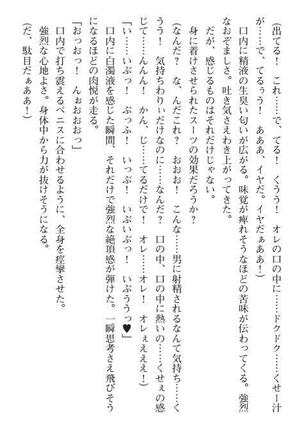 (出てる! これ……で、てる! くうう! オレの口の中に……ドクドク……くせー汁
が……で、てるぅう! あああ、イヤだ。イヤだぁああ!)
口内に精液の生臭い匂いが広がる。味覚が痺れそうなほどの苦味が伝わってくる。強烈
なおぞましさ。吐き気さえわき上がってきた。
だが、感じるものはそれだけじゃない。
身に着けさせられたスーツの効果だろうか?
(なんだ? な、なんだこれ? おおお! こんな……男に射精されるなんて気持ち……く
うう! 気持ちわりぃだけなのに……なんだ? 口の中、口の中に熱いの……くせぇの感
じて……んんん! かん、じ……てるだけで! オレ……オレ! オレぇえええ!)
「い……いぶっ! ぶふっ、んぶふっ! いっぶ! いぶいぶっ! いぶううっ♥」
口内に白濁液を感じた瞬間、それだけで強烈な絶頂感が弾けた。一瞬思考さえ飛びそう
になるほどの肉悦が走る。
「おっおっ! んぉおおおおっ」
口内で打ち震えるペニスに合わせるように、全身を痙攣させた。
強烈な心地よさ。身体中から力が抜けそうになる。
(だ、駄目だぁああ!)